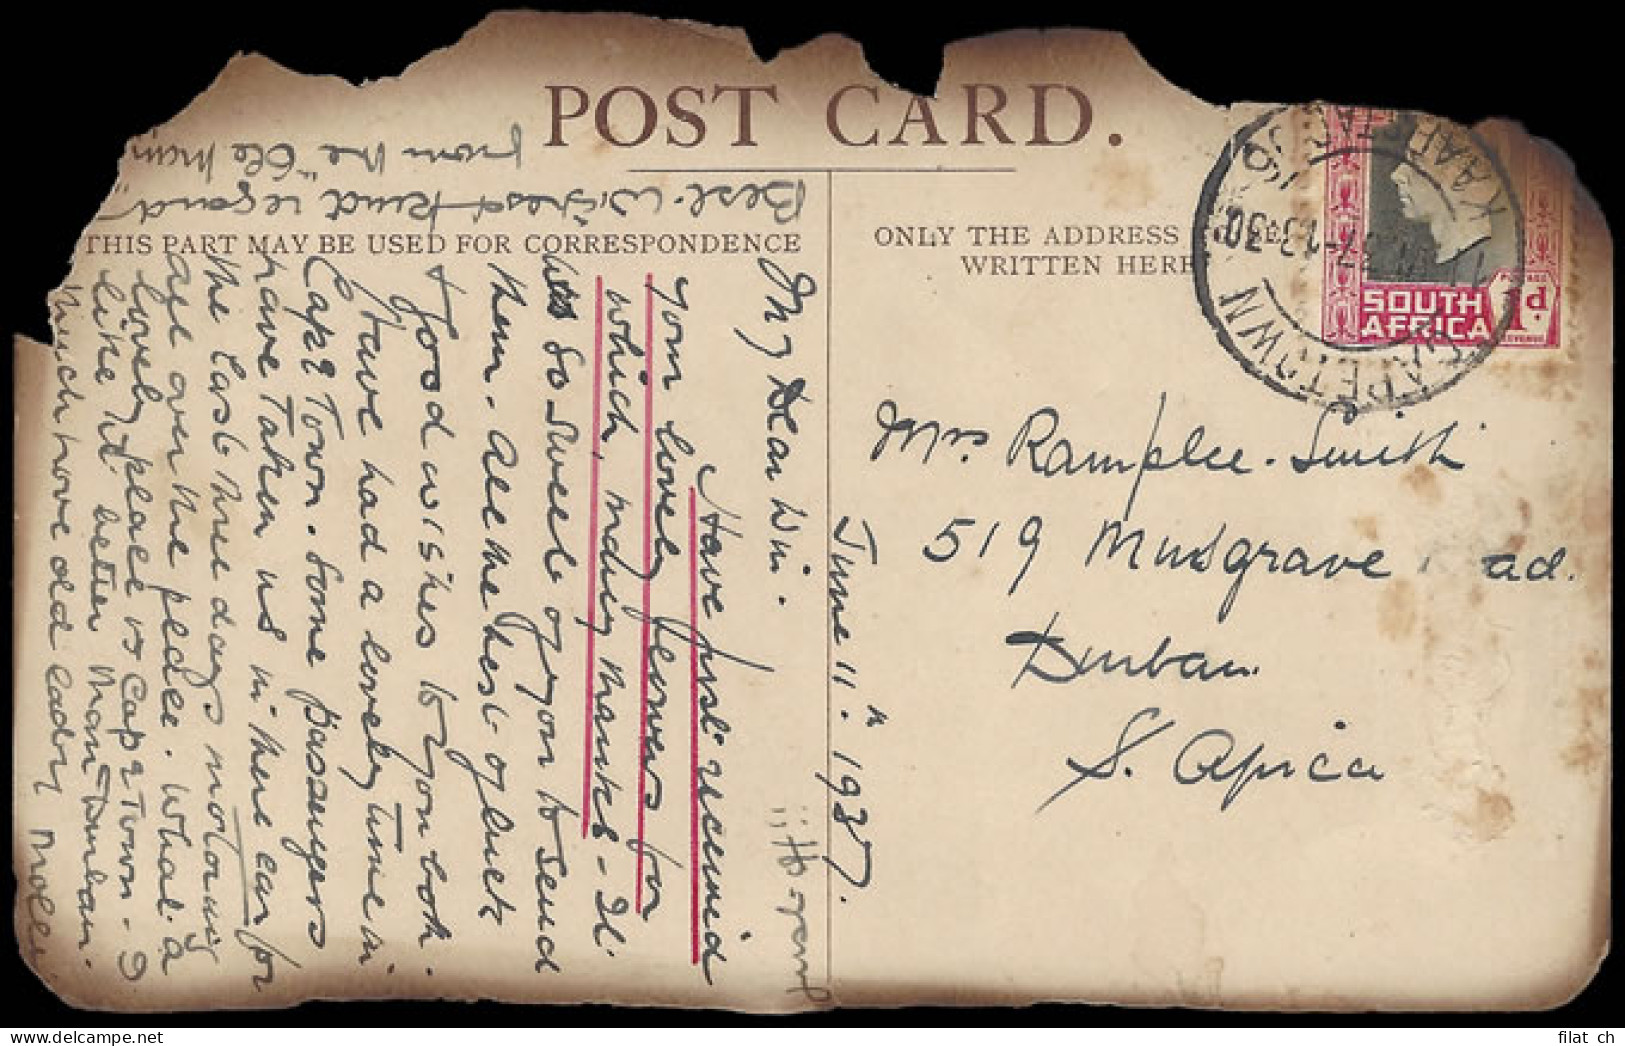 POST CARD.
THIS PART MAY BE USED FOR CORRESPONDENCE
ONLY THE ADDRESS
WRITTEN HERE
SOUTH
AFRICA
1d.
POSTAGE
REVENUE
CAPETOWN
KAAPSTAD
13 30
Mrs Ramplee-Smith
519 Musgrave ad.
Durban
S. Africa
June 11th 1937.
My Dear Win.
Have just received
your lovely flowers for
which, many many thanks - It
was so sweet of you to send
them - All the best of luck
& good wishes to you both.
Have had a lovely time in
Cape Town. Some passengers
have taken us in there car for
the last three days motoring
all over the place. What a
lovely place is Cape Town - I
like it better than Durban.
Much love old lady Molly
Best wishes & kind regards
from the "Old Man